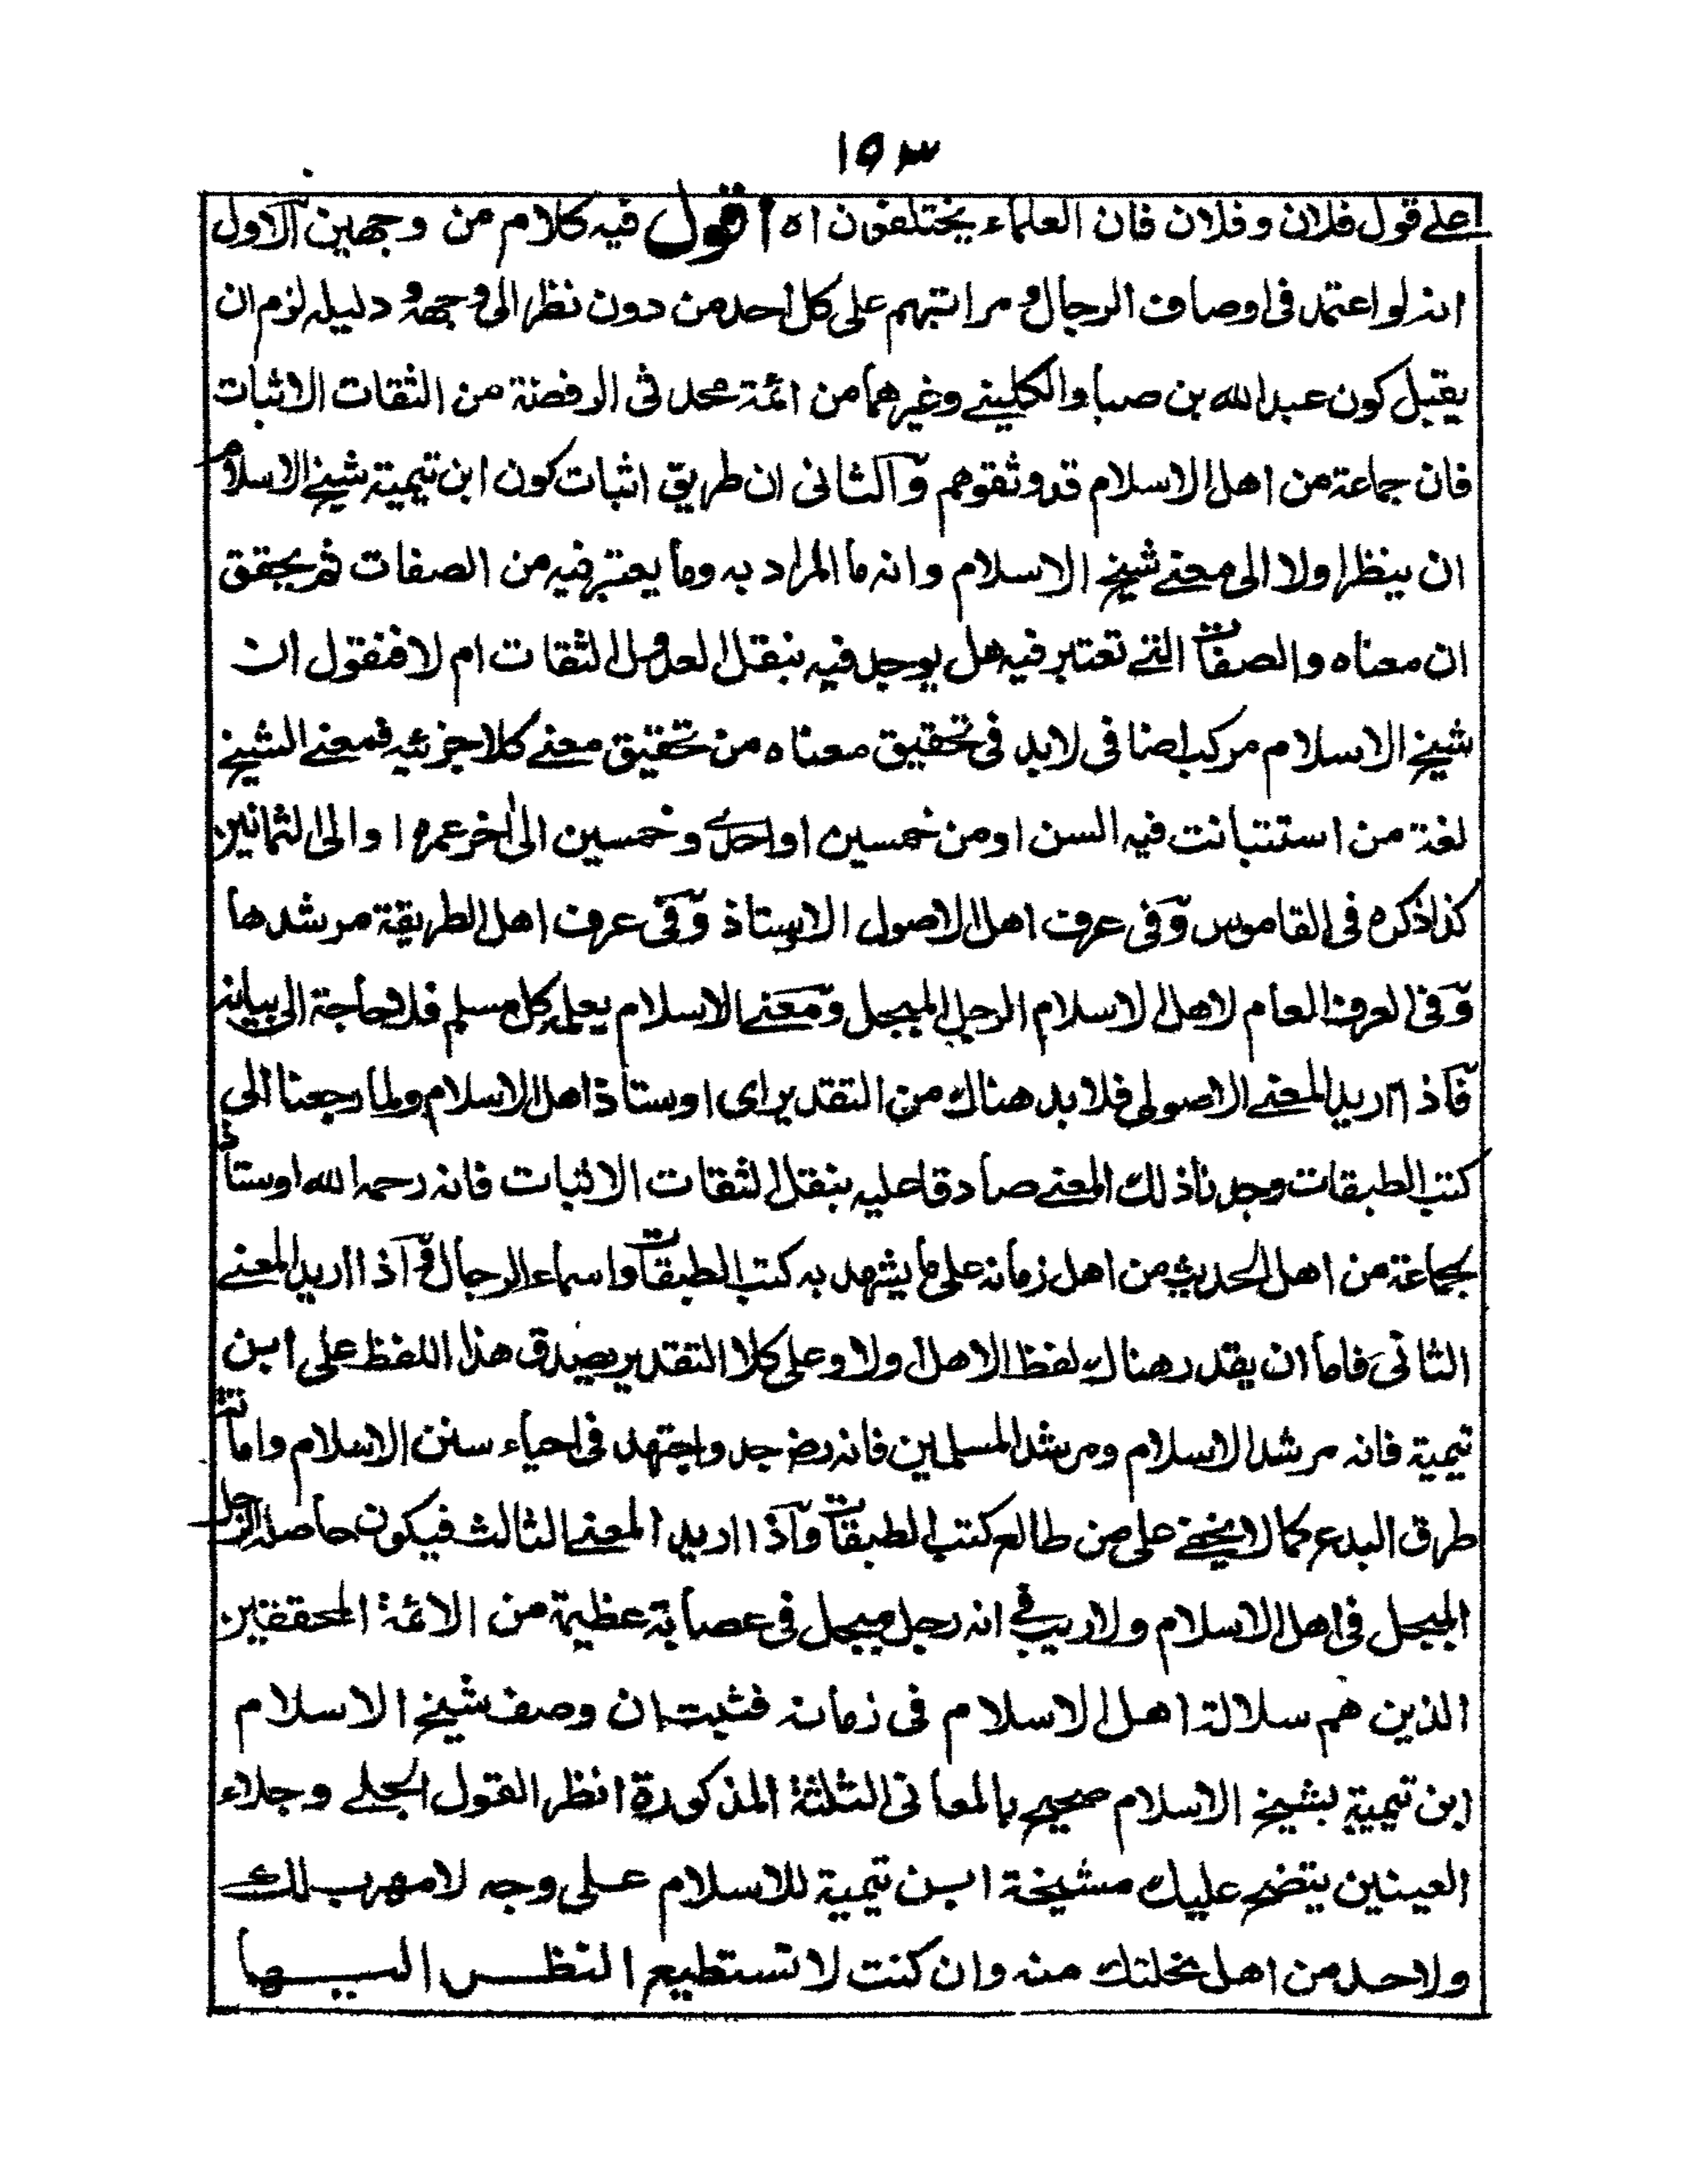 ١٥٣
على قول فلان وفلان فان العلماء يختلفون اه اقول فيه كلام من وجهين الاول
انه لو اعتمد فى اوصاف الرجال ومراتبهم على كل احد من دون نظر الى وجهه ودليله لزم ان
يقبل كون عبد الله بن صبا والكلينى وغيرهما من ائمة محدثى الرفضة من الثقات الاثبات
فان جماعة من اهل الاسلام قد وثقوهم والثانى ان طريق اثبات كون ابن تيمية شيخ الاسلام
ان ينظر اولا الى معنى شيخ الاسلام وانه ما المراد به وما يعتبر فيه من الصفات ثم يحقق
ان معناه والصفات التى تعتبر فيه هل يوجد فيه بنقل العدول الثقات ام لا فنقول ان
شيخ الاسلام مركب اضافى لابد فى تحقيق معناه من تحقيق معنى كلا جزئيه فمعنى الشيخ
لغة من استتبانت فيه السن او من خمسين او احدى وخمسين الى اخر عمره او الى الثمانين
كذا ذكره فى القاموس وفى عرف اهل الاصول الاستاذ وفى عرف اهل الطريقة مرشدها
وفى العرف العام لاهل الاسلام الرجل المبجل ومعنى الاسلام يعلمه كل مسلم فلا حاجة الى بيانه
فاذا اريد المعنى الاصولى فلابد هناك من التقدير اى اوستاذ اهل الاسلام ولما رجعنا الى
كتب الطبقات وجدنا ذلك المعنى صادقا عليه بنقل الثقات الاثبات فانه رحمه الله اوستاذ
لجماعة من اهل الحديث من اهل زمانه على ما يشهد به كتب الطبقات واسماء الرجال واذا اريد المعنى
الثانى فاما ان يقدر هناك لفظ الاهل اولا وعلى كلا التقدير يصدق هذا اللفظ على ابن
تيمية فانه مرشد الاسلام ومرشد المسلمين فانه رضـ جد واجتهد فى احياء سنن الاسلام واماتة
طرق البدع كما لا يخفى على من طالع كتب الطبقات واذا اريد المعنى الثالث فيكون حاصله الرجل
المبجل فى اهل الاسلام ولا ريب فى انه رجل مبجل فى عصابة عظيمة من الائمة المحققين
الذين هم سلالة اهل الاسلام فى زمانه فثبت ان وصف شيخ الاسلام
ابن تيمية بشيخ الاسلام صحيح بالمعانى الثلثة المذكورة انظر القول الجلى وجلاء
العينين يتضح عليك مشيخة ابن تيمية للاسلام على وجه لا مهرب لك
ولاحد من اهل نحلتك منه وان كنت لا تستطيع النظر اليها